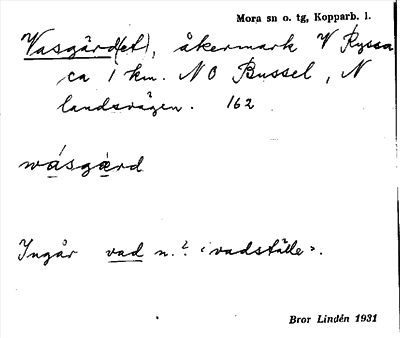 Mora sn o. tg, Kopparb. l.
Vasgärd(et), åkermark V Ryssa
ca 1 km. NO Bussel, N
landsvägen. 162
wásgärd
Ingår vad n.? "vadställe".
Bror Lindén 1931